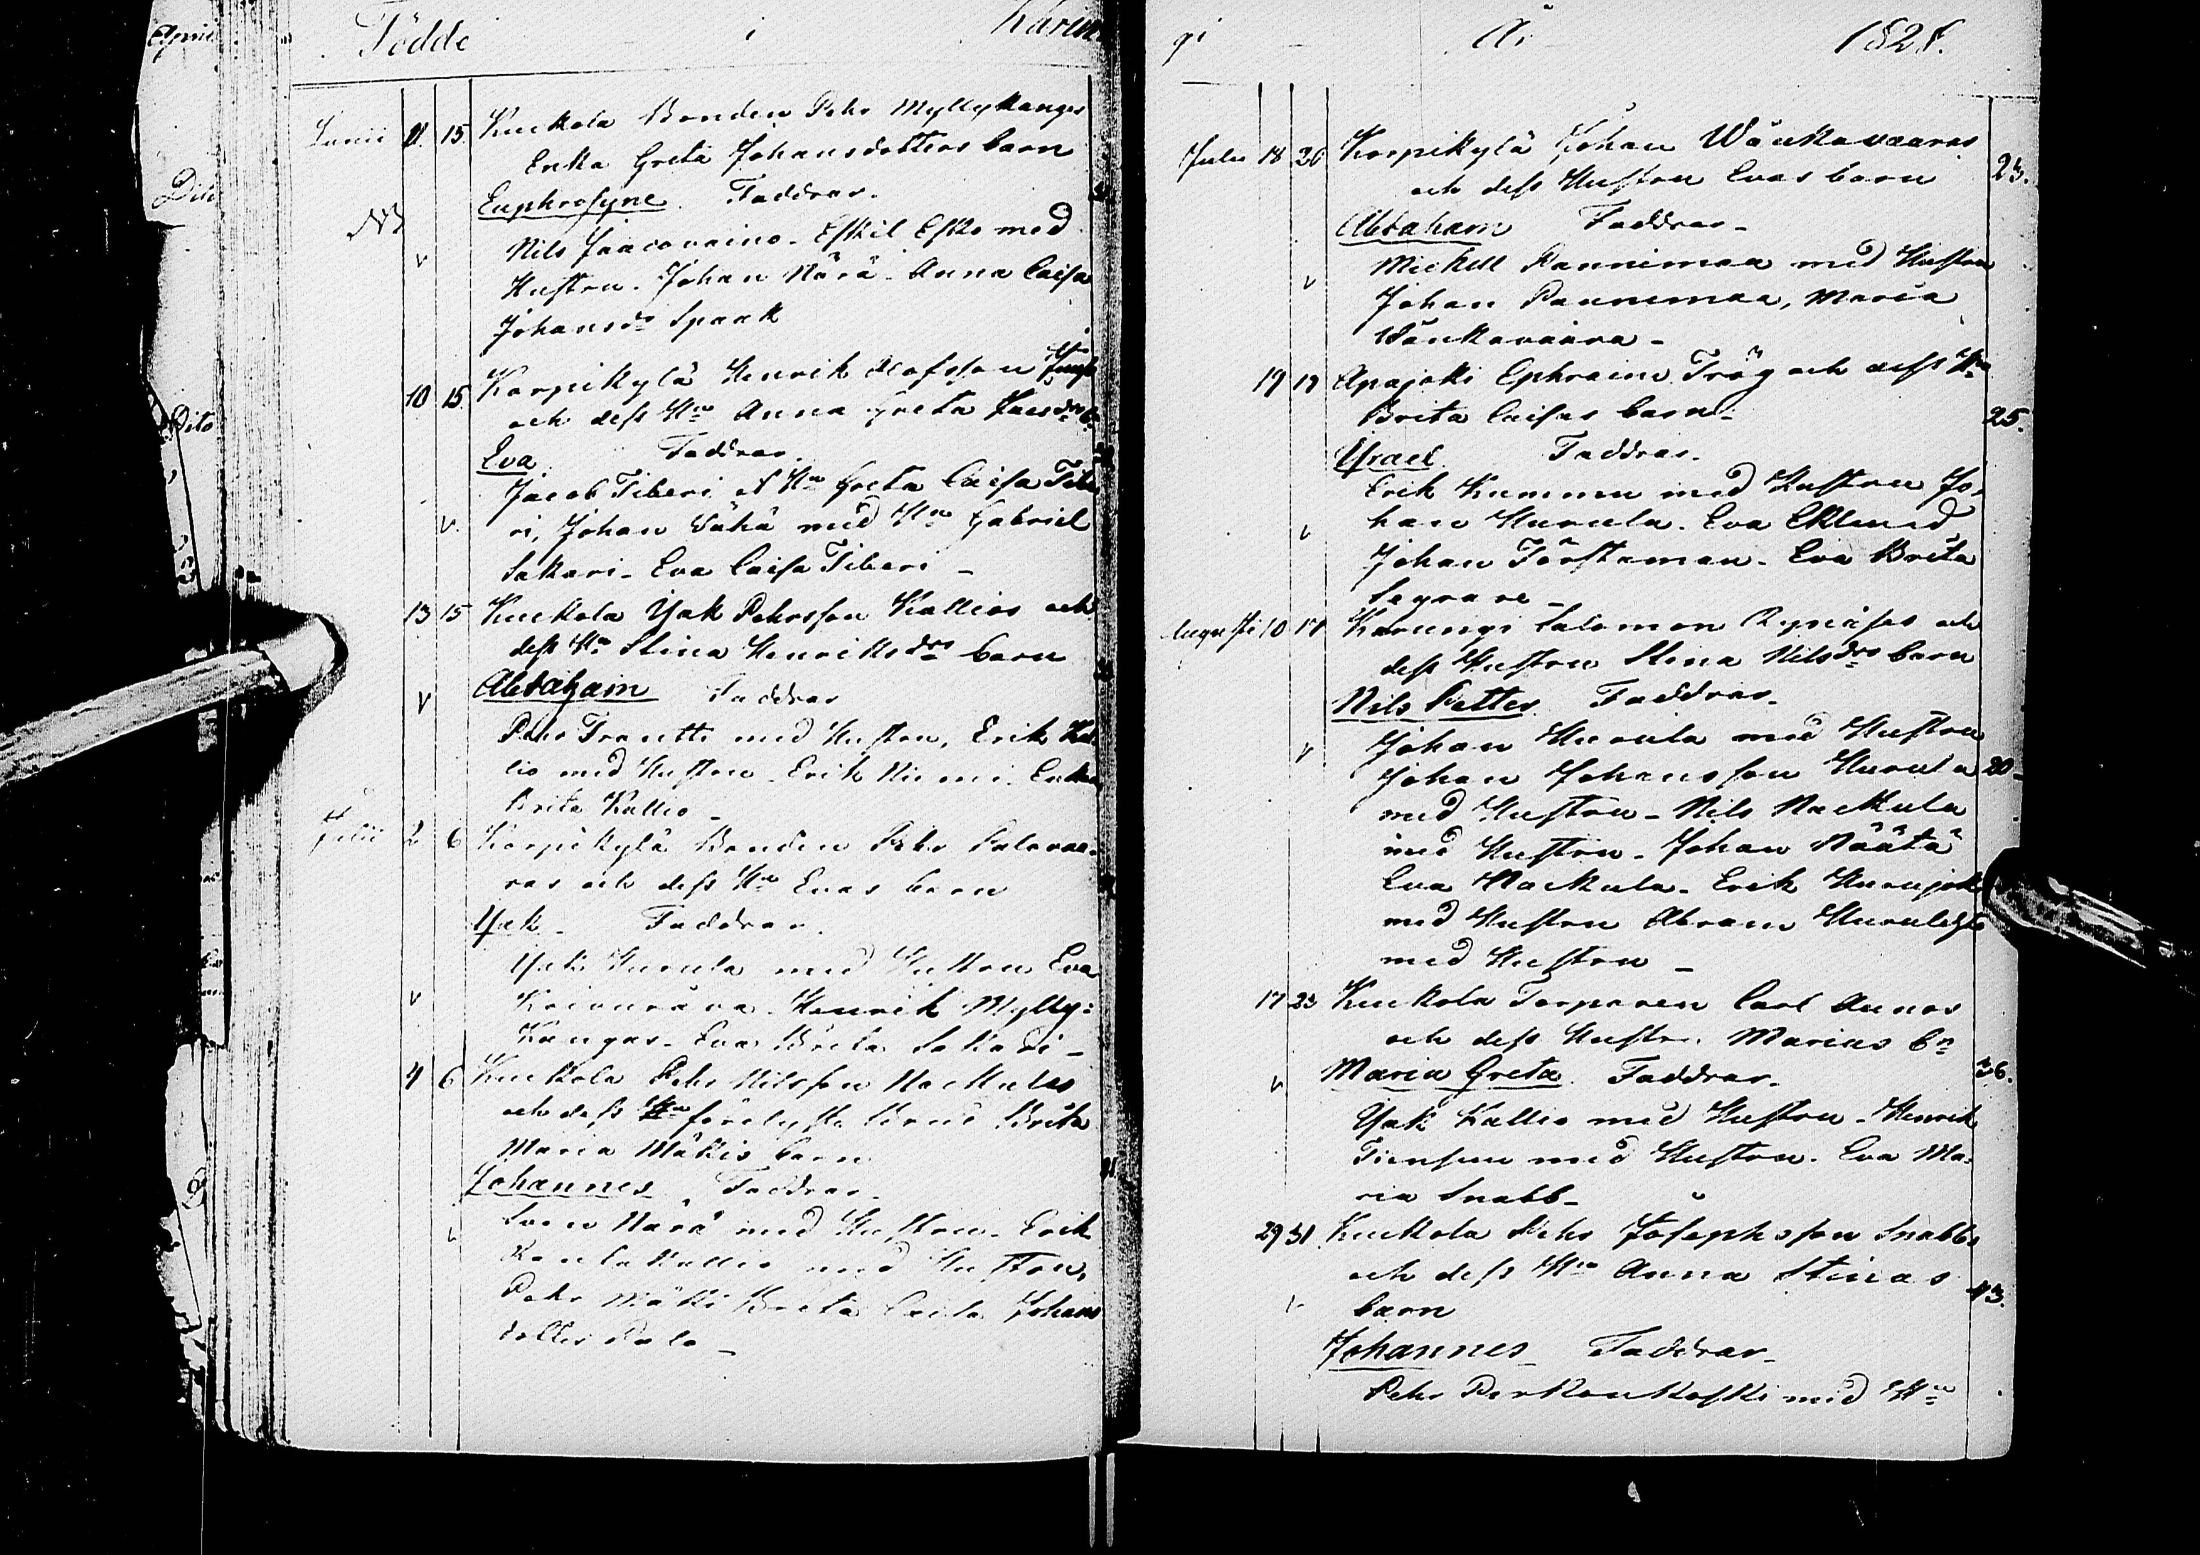 Födde i Karun
Junii 11. 15. Kuckola Bonden Pehr Myllykangas
Erika Greta Johansdotters barn
Euphrosyne. Faddrar.
NB
Nils Jaacovaino. Eskil Esko med
Hustru. Johan Närä. Anna Caisa
Johansdr Spaak
10 15. Korpikylä Henrik Olofsson
och dess Hu Anna Greta
Eva. Faddrar.
Jacob Tiberi et Hu Greta Caisa Tibe
ri, Johan med Hu Gabriel
Sakari. Eva Caisa Tiberi
13 15 Kuckola Isak Pehrsson Kallios och
dess Hu Stina Henriksdrs barn
Abraham Faddrar
Pehr Trautti med Hustru, Erik Kal
lio med Hustru. Erik Niemi.
Brita Kallio
Julii 2 6 Korpikylä Bonden Pehr Palovaa-
ras och dess Hu Evas barn
Isak. Faddrar.
Isak Hurula med Hustru Eva
Henrik Mylly=
kangas. Eva Brita Sakari
4 6 Kuckola Pehr Nilsson Nackulas
och dess förelyste Brud Brita
Maria Mäkis barn
Johannes. Faddrar.
Sven Närä med Hustru. Erik
med Hustru,
Pehr Mäki Brita Johans
dotter Palo
gi År 1828.
Julii 18 20 Korpikylä Johan Wänkavaaras
och dess Hustru Evas barn 23.
Abraham Faddrar
Mickell Pannimaa med Hustru
Johan Pannimaa, Maria
Wänkavaara
19 19 Apajoki Ephraim Trög och dess Hu
Brita Caisas barn 25.
Israel. Faddrar.
Erik Kummu med Hustru Jo-
han Hurula. Eva Eklund
Johan Törstaman. Eva Brita
Augusti 10 17 Karungi Salomon och
dess Hustru Stina Nilsdrs barn
Nils Petter. Faddrar.
Johan Hurula med Hustru
Johan Johansson Hurula
med Hustru. Nils Nackula
med Hustru. Johan Näätä
Eva Nackula. Erik
med Hustru Abram
med Hustru
17 23 Kuckola Torparen Carl Aunos
och dess Hustru Marias bn
Maria Greta. Faddrar. 36.
Isak Kallio med Hustru. Henrik
med Hustru. Eva Ma-
ria Snabb
29 31. Kuckola Pehr Josephsson Snabbs
och dess Hu Anna Stinas 43.
barn
Johannes Faddrar
Pehr Parkaukoski med Hu